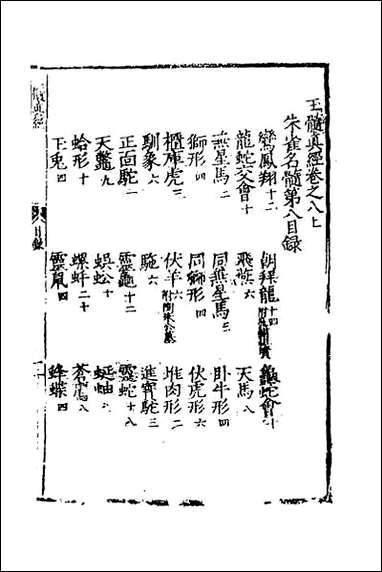 玉髓真經卷之八上
朱雀名髓第八目録
鸞鳳翔十二 朝拜龍十四 龜蛇會十
龍蛇交會十 飛燕六 天馬八
無星馬二 同無星馬三 卧牛形四
獅形四 同獅形四 伏虎形六
櫃庫虎三 伏羊六 堆肉形二
馴象六 駞六 進寶駝三
正面駝二 靈龜十二 靈蛇十八
天鼈九 蜈蚣十 蜒蚰
蛤形十 螺蚌二十 蒼鳫八
玉兎四 靈鼠四 蜂蝶四
髓真經
目録